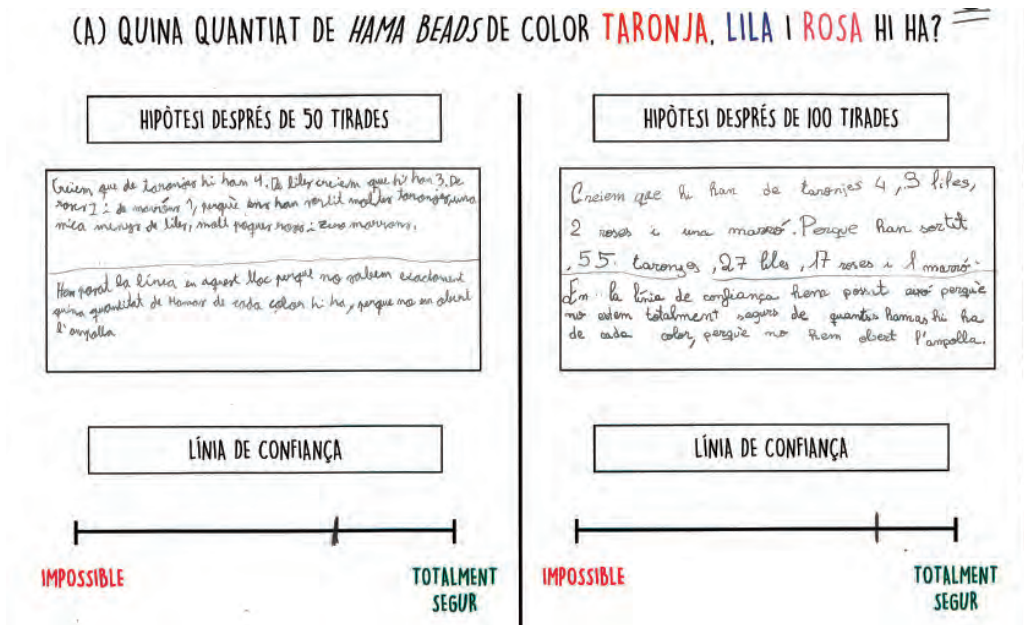 (A) QUINA QUANTIAT DE HAMA BEADS DE COLOR TARONJA, LILA I ROSA HI HA?
HIPÒTESI DESPRÉS DE 50 TIRADES
Creiem que de taronjas hi han 4. De liles creiem que hi han 3. De
roses 2 i de marrons 1, perquè ens han sortit moltes taronjes, una
mica menys de liles, molt poques roses i zero marrons.
Hem posat la línea en aquest lloc perquè no sabem exactament
quina quantitat de Hamas de cada color hi ha, perque no em obert
l'ampolla
LÍNIA DE CONFIANÇA
IMPOSSIBLE
TOTALMENT
SEGUR
HIPÒTESI DESPRÉS DE 100 TIRADES
Creiem que hi han de taronjes 4, 3 liles,
2 roses i una marró. Perque han sortit
55 taronges, 27 liles, 17 roses i 1 marró.
En la línia de confiança hem posat això perquè
no estem totalment segurs de quantes hamas hi ha
de cada color, perquè no hem obert l'ampolla.
LÍNIA DE CONFIANÇA
IMPOSSIBLE
TOTALMENT
SEGUR